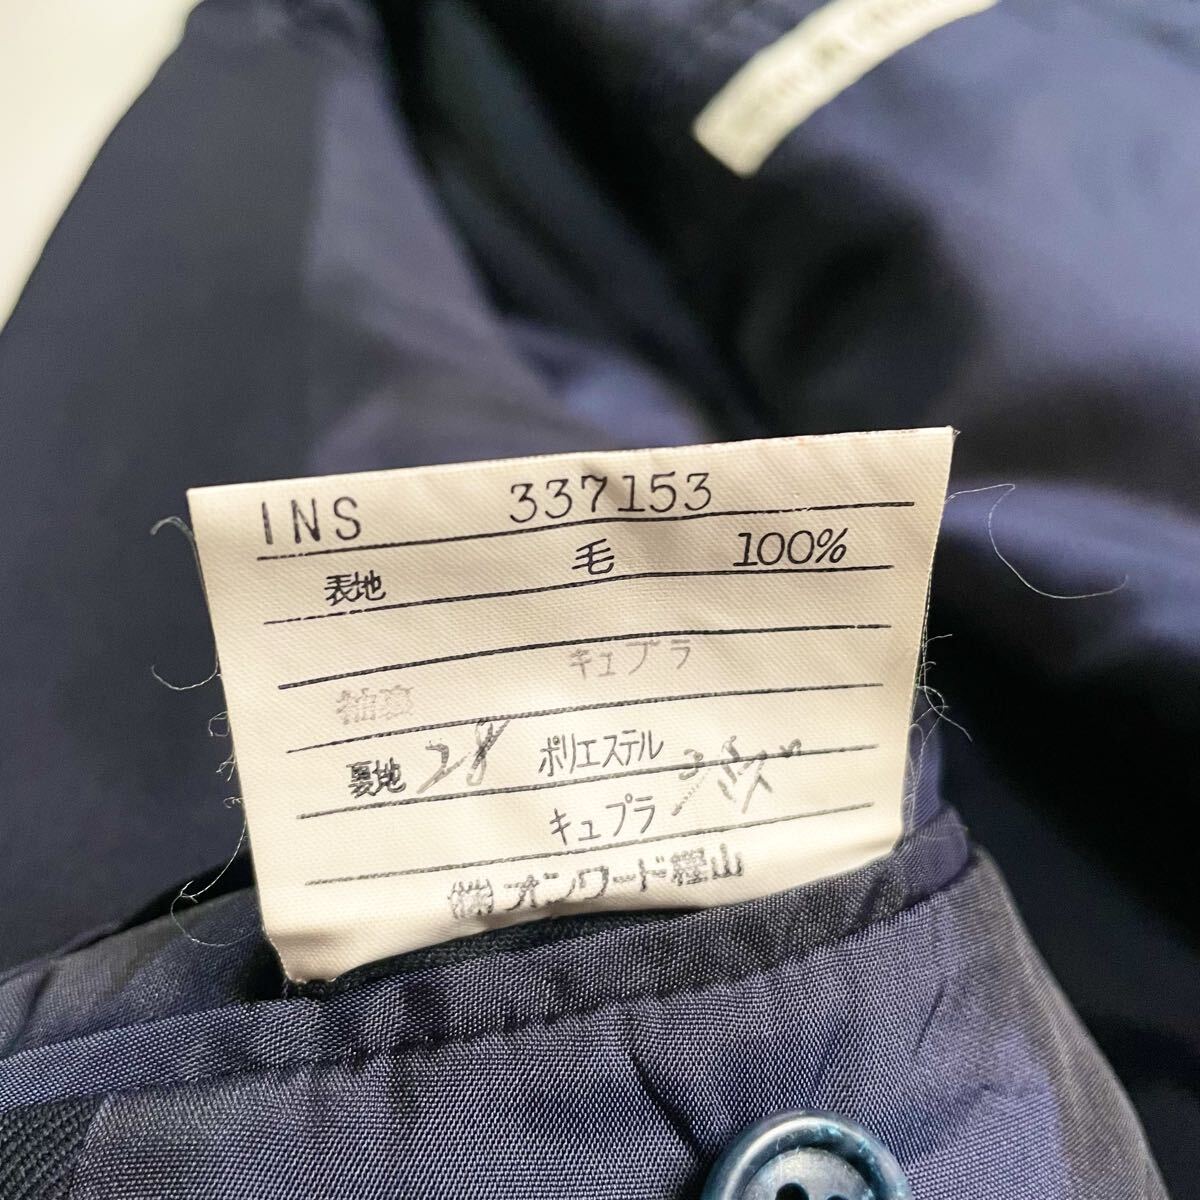 INS 337153
表地 毛 100%
キュプラ
袖裏
裏地 28 ポリエステル
キュプラ
㈱オンワード樫山